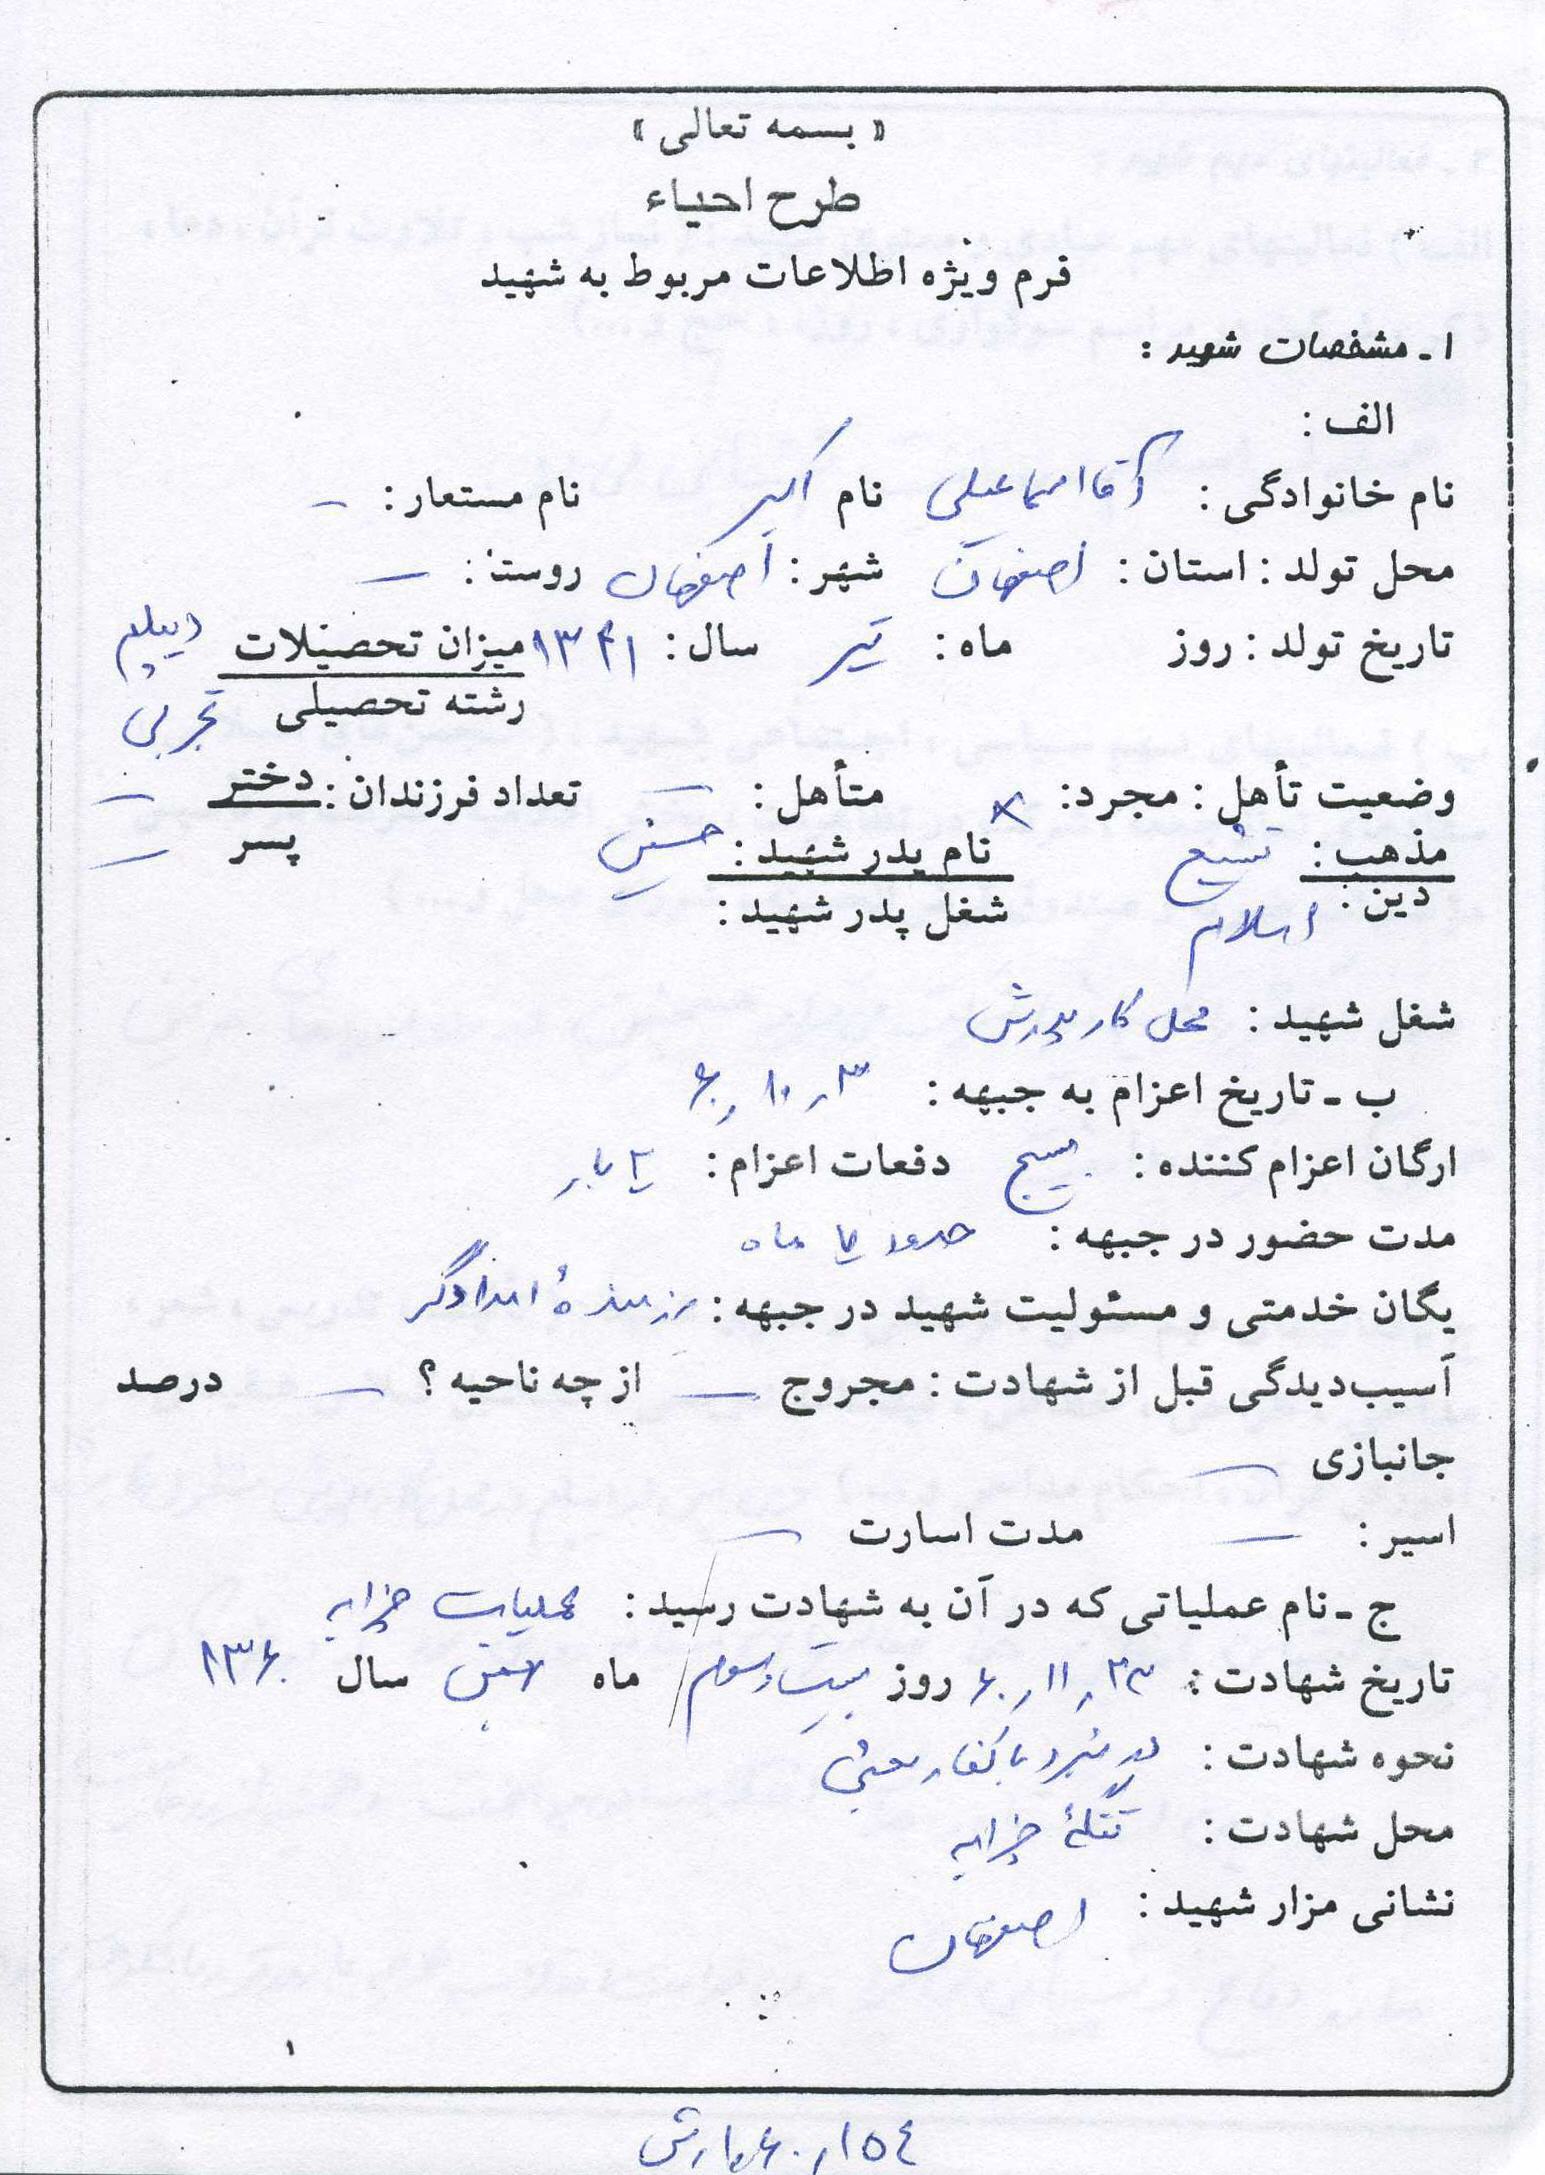 « بسمه تعالی »
طرح احیاء
فرم ویژه اطلاعات مربوط به شهید
۱ ـ مشخصات شهید :
الف :
نام خانوادگی : آقا اسماعیلی نام اکبر نام مستعار : –
محل تولد : استان : اصفهان شهر : اصفهان روستا : –
تاریخ تولد : روز ماه : تیر سال : ۱۳۴۱ میزان تحصیلات دیپلم
رشته تحصیلی تجربی
وضعیت تأهل : مجرد : × متأهل : – تعداد فرزندان : دختر –
مذهب : تشیع نام پدر شهید : حسین پسر –
دین : اسلام شغل پدر شهید :
شغل شهید : محل کار پدرش
ب ـ تاریخ اعزام به جبهه : ۳ر۱۰ر۶۰
ارگان اعزام کننده : بسیج دفعات اعزام : ۲ بار
مدت حضور در جبهه : حدود ماه
یگان خدمتی و مسئولیت شهید در جبهه : رزمنده امدادگر
آسیب‌دیدگی قبل از شهادت : مجروج – از چه ناحیه ؟ – درصد
جانبازی –
اسیر : – مدت اسارت –
ج ـ نام عملیاتی که در آن به شهادت رسید : عملیات چزابه
تاریخ شهادت : ۲۳ر۱۱ر۶۰ روز بیست و سوم ماه بهمن سال ۱۳۶۰
نحوه شهادت : در نبرد با کفار بعثی
محل شهادت : تنگهٔ چزابه
نشانی مزار شهید : اصفهان
۱